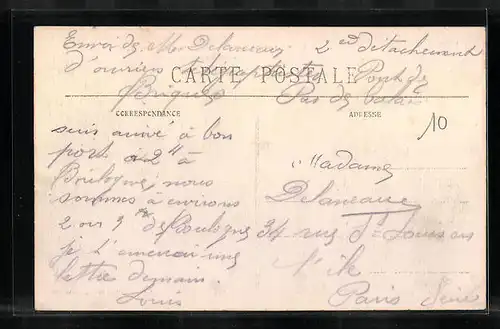 Envoi de M. Delaneau 2 ed détachement
d'ouvriers télégraphistes Pont de
Briques Pas de Calais
CARTE POSTALE
CORRESPONDANCE
ADRESSE
10
suis arrivé à bon
port à 2 H à
Boulogne; nous
sommes à environs
2 ou 3 de Boulogne
je t'enverrai une
lettre demain.
Louis
Madame
Delaneau
34 rue St Louis en
l'ile
Paris Seine